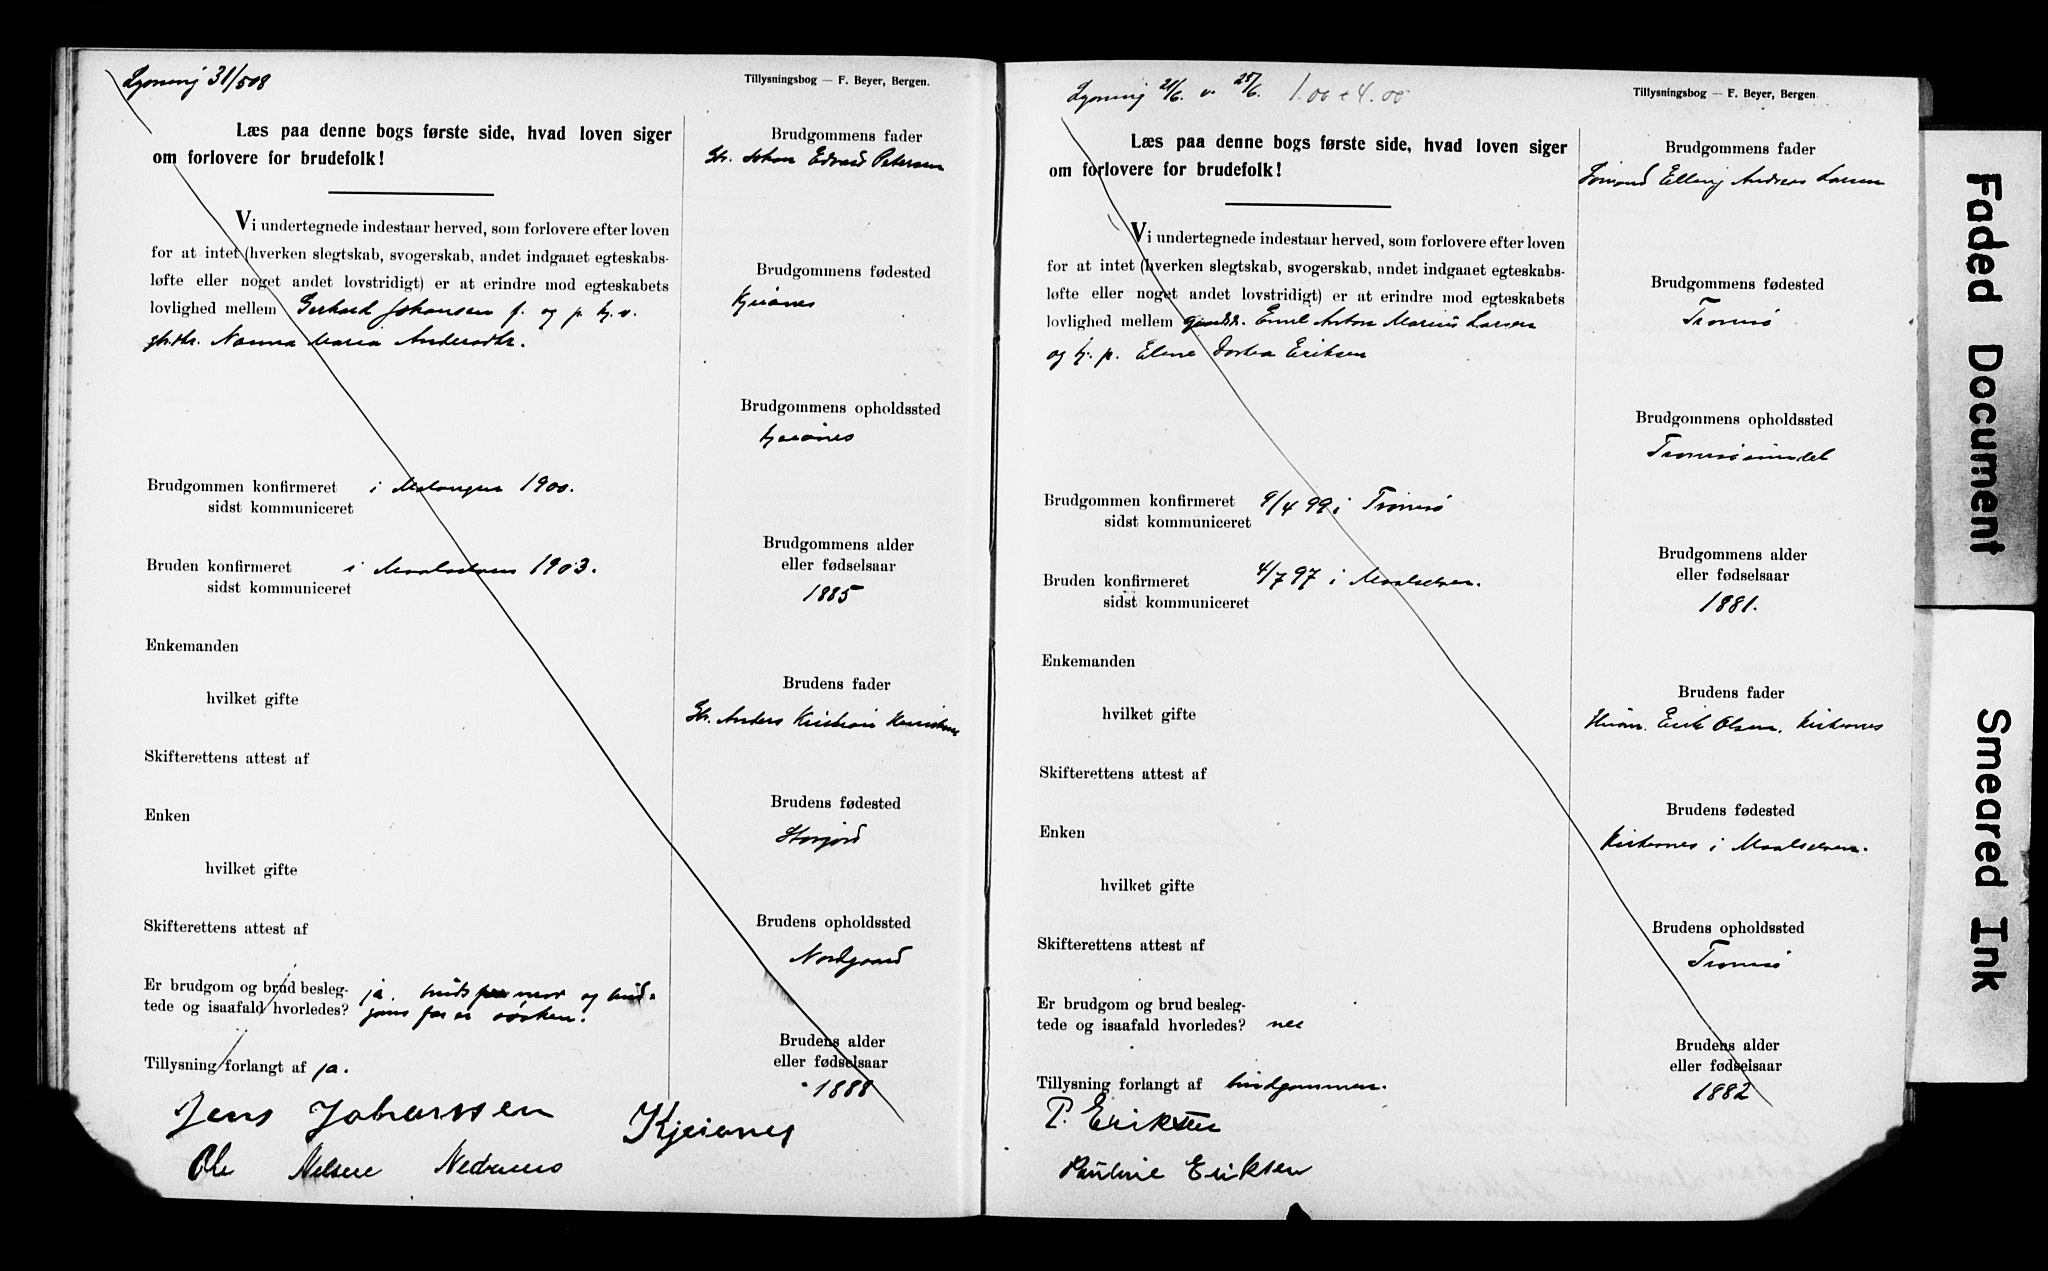 Lysning 31/5 08
Tillysningsbog — F. Beyer, Bergen.
Læs paa denne bogs første side, hvad loven siger
om forlovere for brudefolk!
Vi undertegnede indestaar herved, som forlovere efter loven
for at intet (hverken slegtskab, svogerskab, andet indgaaet egteskabs-
løfte eller noget andet lovstridigt) er at erindre mod egteskabets
lovlighed mellem Gerhard Johansen f. og p. tj. v.
Nanna Maria Andersdtr.
Brudgommen konfirmeret i Malangen 1900.
sidst kommuniceret
Bruden konfirmeret i Maalselven 1903.
sidst kommuniceret
Enkemanden
hvilket gifte
Skifterettens attest af
Enken
hvilket gifte
Skifterettens attest af
Er brudgom og brud besleg- ja. bruds mor og brud-
tede og isaafald hvorledes? goms far er søsken.
Tillysning forlangt af ja.
Jens Johanssen Kjeianes
Ole Nilsen Nedrenes
Brudgommens fader
Gbr. Johan Edvard Petersen
Brudgommens fødested
Kjeianes
Brudgommens opholdssted
Kjeianes
Brudgommens alder
eller fødselsaar
1885
Brudens fader
Gbr. Anders Kristian
Brudens fødested
Storjord
Brudens opholdssted
Nordgaard
Brudens alder
eller fødselsaar
1888
Lysning 21/6. v. 28/6. 1.00 + 4.00
Tillysningsbog — F. Beyer, Bergen.
Læs paa denne bogs første side, hvad loven siger
om forlovere for brudefolk!
Vi undertegnede indestaar herved, som forlovere efter loven
for at intet (hverken slegtskab, svogerskab, andet indgaaet egteskabs-
løfte eller noget andet lovstridigt) er at erindre mod egteskabets
lovlighed mellem Emil Anton Marius Larsen
og tj. p. Eline Dortea Eriksen
Brudgommen konfirmeret 9/4 99 i Tromsø
sidst kommuniceret
Bruden konfirmeret 4/7 97 i Maalselven.
sidst kommuniceret
Enkemanden
hvilket gifte
Skifterettens attest af
Enken
hvilket gifte
Skifterettens attest af
Er brudgom og brud besleg-
tede og isaafald hvorledes? nei
Tillysning forlangt af brudgommen.
P. Eriksen
Pauline Eriksen
Brudgommens fader
Elling Andreas Larsen
Brudgommens fødested
Tromsø
Brudgommens opholdssted
Tromsøsundet
Brudgommens alder
eller fødselsaar
1881.
Brudens fader
Erik Olsen. Kirkenes
Brudens fødested
Kirkenes i Maalselven.
Brudens opholdssted
Tromsø
Brudens alder
eller fødselsaar
1882
Faded Document
Smeared Ink